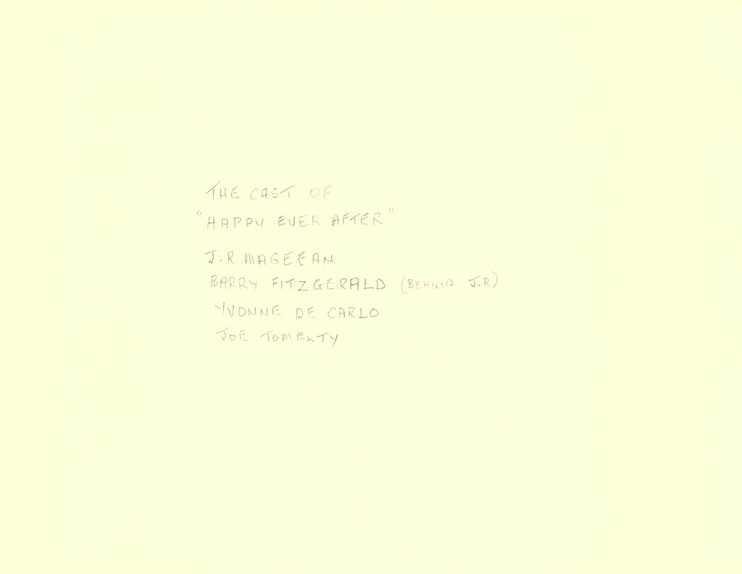 THE CAST OF
"HAPPY EVER AFTER"
J.R MAGEEAN
BARRY FITZGERALD (BEHIND J.R)
YVONNE DE CARLO
JOE TOMELTY